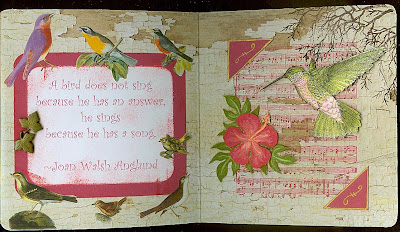 A bird does not sing
because he has an answer,
he sings
because he has a song.
~Joan Walsh Anglund